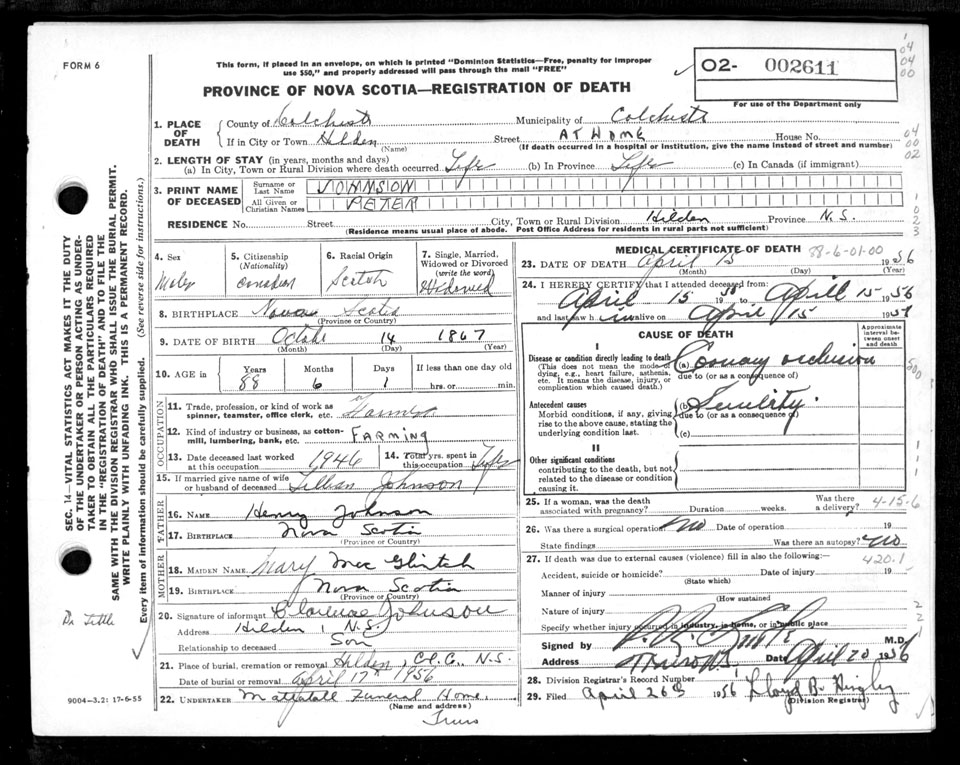 FORM 6
This form, if placed in an envelope, on which is printed "Dominion Statistics—Free, penalty for improper
use $50," and properly addressed will pass through the mail "FREE"
O2- 002611
For use of the Department only
04
04
00
PROVINCE OF NOVA SCOTIA—REGISTRATION OF DEATH
1. PLACE OF DEATH
County of Colchester Municipality of Colchester
If in City or Town Hilden Street AT HOME House No.
(Name) (If death occurred in a hospital or institution, give the name instead of street and number)
04
00
02
2. LENGTH OF STAY (in years, months and days)
(a) In City, Town or Rural Division where death occurred Life (b) In Province Life (c) In Canada (if immigrant)
3. PRINT NAME OF DECEASED
Surname or Last Name JOHNSTON
All Given or Christian Names PETER
RESIDENCE No. Street City, Town or Rural Division Hilden Province N.S.
(Residence means usual place of abode. Post Office Address for residents in rural parts not sufficient)
4. Sex
Male
5. Citizenship
(Nationality)
Canadian
6. Racial Origin
Scotch
7. Single, Married, Widowed or Divorced
(write the word)
Widowed
8. BIRTHPLACE Nova Scotia
(Province or Country)
9. DATE OF BIRTH October 14 1867
(Month) (Day) (Year)
10. AGE in
Years Months Days If less than one day old
88 6 1 hrs. or min.
OCCUPATION
11. Trade, profession, or kind of work as
spinner, teamster, office clerk, etc. Farmer
12. Kind of industry or business, as cotton-
mill, lumbering, bank, etc. FARMING
13. Date deceased last worked
at this occupation 1946
14. Total yrs. spent in
this occupation Life
15. If married give name of wife
or husband of deceased Lillian Johnson
FATHER
16. NAME Henry Johnson
17. BIRTHPLACE Nova Scotia
(Province or Country)
MOTHER
18. MAIDEN NAME Mary
19. BIRTHPLACE Nova Scotia
(Province or Country)
20. Signature of informant Clarence Johnson
Address Hilden, N.S.
Relationship to deceased Son
21. Place of burial, cremation or removal Hilden, Cl.C., N.S.
Date of burial or removal April 17th 1956
22. UNDERTAKER Mattatall Funeral Home,
(Name and address)
Truro
MEDICAL CERTIFICATE OF DEATH
88-6-01-00
23. DATE OF DEATH April 15 1956
(Month) (Day) (Year)
24. I HEREBY CERTIFY that I attended deceased from
April 15 19 to April 15 1956
and last saw h im alive on April 15 195
CAUSE OF DEATH
Approximate interval between onset and death
I
Disease or condition directly leading to death
(This does not mean the mode of
dying, e.g., heart failure, asthenia,
etc. It means the disease, injury, or
complication which caused death.)
(a) Coronary occlusion
due to (or as a consequence of)
Antecedent causes
Morbid conditions, if any, giving
rise to the above cause, stating the
underlying condition last.
(b) Senility
due to (or as a consequence of)
(c)
II
Other significant conditions
contributing to the death, but not
related to the disease or condition
causing it.
25. If a woman, was the death
associated with pregnancy? Duration weeks. Was there a delivery?
4-15-6
26. Was there a surgical operation No Date of operation 19
State findings Was there an autopsy? No
27. If death was due to external causes (violence) fill in also the following:
420.1
Accident, suicide or homicide? Date of injury 19
(State which)
Manner of injury
(How sustained
Nature of injury
Specify whether injury occurred in industry, in home, or in public place
Signed by M.D.
Address Truro N.S. Date April 20 1956
28. Division Registrar's Record Number
29. Filed April 26th 1956 Lloyd B.
(Division Registrar)
SEC. 14—VITAL STATISTICS ACT MAKES IT THE DUTY
OF THE UNDERTAKER OR PERSON ACTING AS UNDER-
TAKER TO OBTAIN ALL THE PARTICULARS REQUIRED
IN THE "REGISTRATION OF DEATH" AND TO FILE THE
SAME WITH THE DIVISION REGISTRAR WHO SHALL ISSUE THE BURIAL PERMIT.
WRITE PLAINLY WITH UNFADING INK. THIS IS A PERMANENT RECORD.
Every item of information should be carefully supplied. (See reverse side for instructions.)
Dr Tittle
9004—3.2: 17-6-55